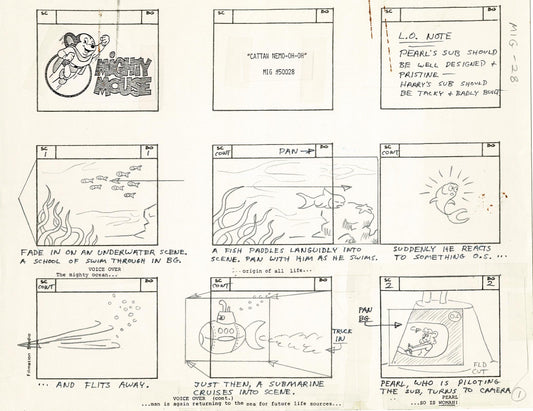 SC BG SC BG SC BG
MIGHTY
MOUSE
"CATTAN NEMO-OH-OH"
MIG #50028
L.O. NOTE
PEARL'S SUB SHOULD
BE WELL DESIGNED +
PRISTINE —
HARRY'S SUB SHOULD
BE TACKY + BADLY BUILT
MIG-28
SC BG
1 1
SC
CONT
PAN
BG
SC
CONT
BG
FADE IN ON AN UNDERWATER SCENE.
A SCHOOL OF SWIM THROUGH IN BG.
VOICE OVER
The mighty Ocean...
A FISH PADDLES LANGUIDLY INTO
SCENE. PAN WITH HIM AS HE SWIMS.
...origin of all life...
SUDDENLY HE REACTS
TO SOMETHING O.S. ...
SC
CONT
BG
SC
CONT
BG
SC BG
2 2
TRUCK
IN
PAN
BG
FLD
CUT
... AND FLITS AWAY.
JUST THEN, A SUBMARINE
CRUISES INTO SCENE.
VOICE OVER (cont.)
...man is again returning to the sea for future life sources...
PEARL, WHO IS PILOTING
THE SUB, TURNS TO CAMERA
PEARL
...SO IS WOMAN!
1